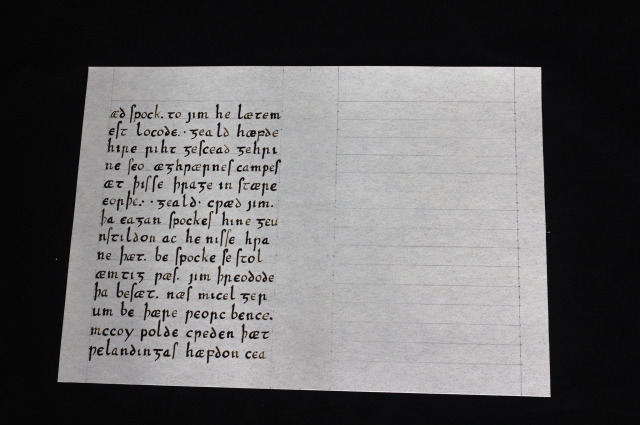 æd spock. to jim he lætem
est locode. · geald hæfde
hire riht gescead gehri
ne seo æghƿærnes campes
æt þisse þrage in stære
eorþe. · geald · cƿæd jim.
þa eagan spockes hine geu
nstildon ac he nisse hra
ne þæt. be spocke se stol
æmtig ƿæs. jim þreodode
þa besæt. næs micel ger
um be þære ƿeorc bence.
mccoy ƿolde cƿeden þæt
ƿelandingas hæfdon cea